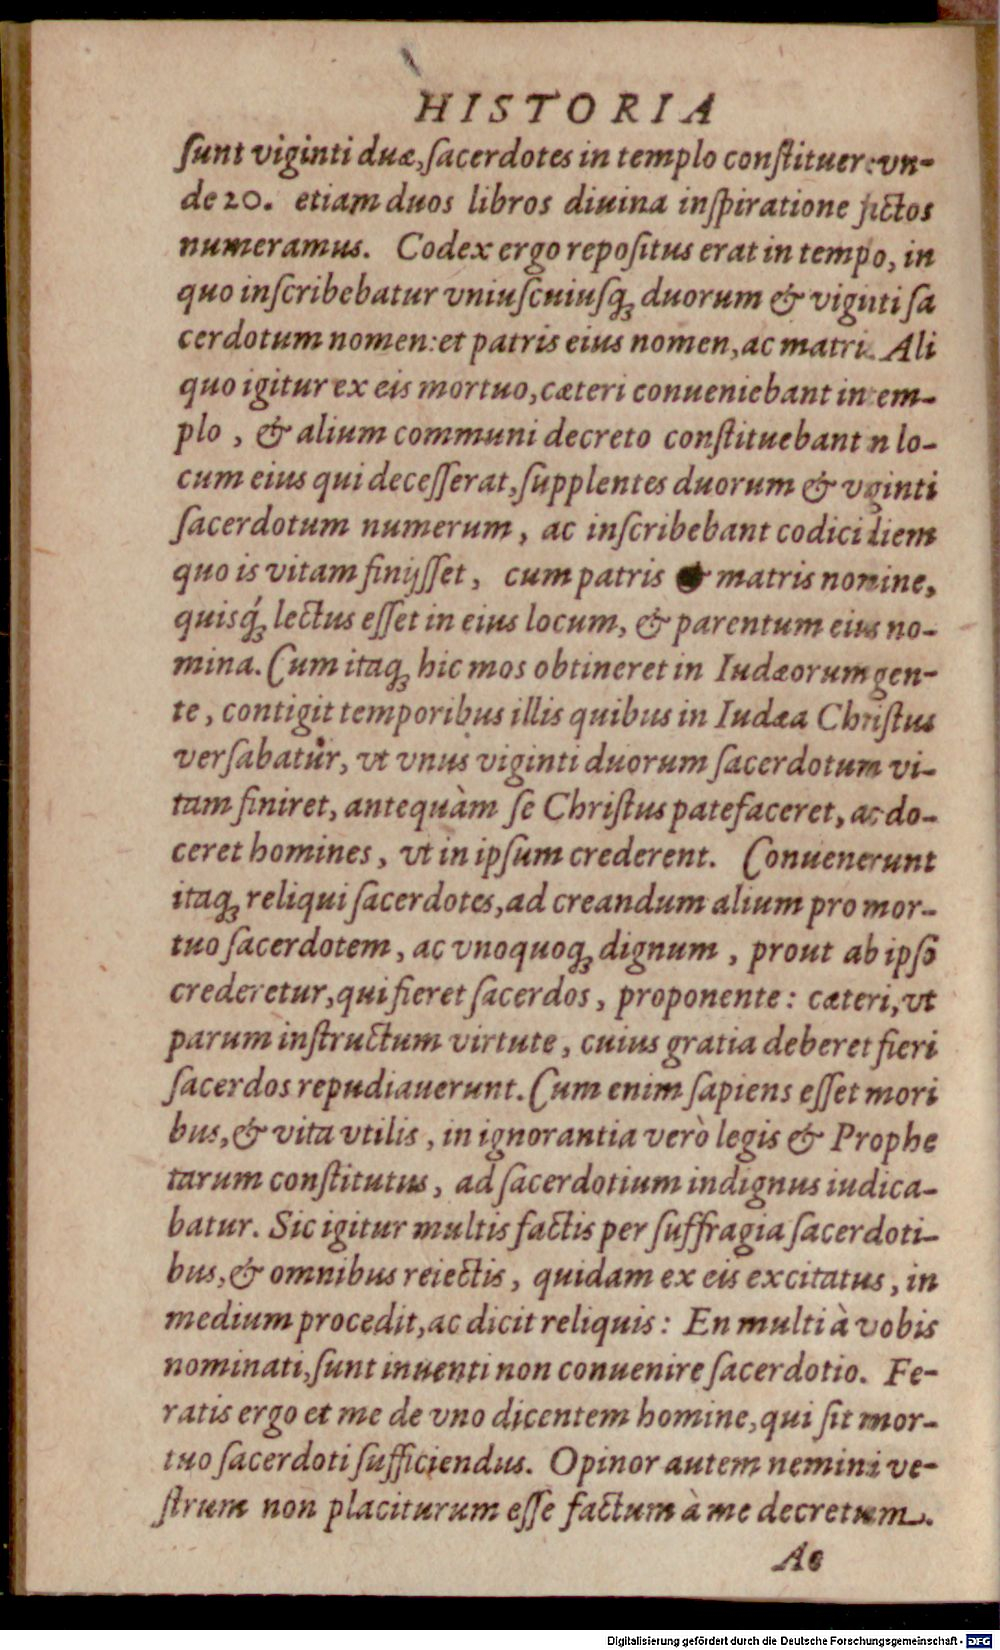 HISTORIA
ſunt viginti duæ, ſacerdotes in templo conſtituere: vn-
de 20. etiam duos libros diuina inſpiratione fictos
numeramus. Codex ergo repoſitus erat in tempo, in
quo inſcribebatur vniuſcuiuſq́; duorum & viginti ſa
cerdotum nomen: et patris eius nomen, ac matri. Ali
quo igitur ex eis mortuo, cæteri conueniebant in tem-
plo, & alium communi decreto conſtituebant in lo-
cum eius qui deceſſerat, ſupplentes duorum & viginti
ſacerdotum numerum, ac inſcribebant codici diem
quo is vitam finijſſet, cum patris & matris nomine,
quisq́; lectus eſſet in eius locum, & parentum eius no-
mina. Cum itaq; hic mos obtineret in Iudæorum gen-
te, contigit temporibus illis quibus in Iudæa Chriſtus
verſabatur, vt vnus viginti duorum ſacerdotum vi-
tam finiret, antequàm ſe Chriſtus patefaceret, ac do-
ceret homines, vt in ipſum crederent. Conuenerunt
itaq; reliqui ſacerdotes, ad creandum alium pro mor-
tuo ſacerdotem, ac vnoquoq; dignum, prout ab ipſo
crederetur, qui fieret ſacerdos, proponente: cæteri, vt
parum inſtructum virtute, cuius gratia deberet fieri
ſacerdos repudiauerunt. Cum enim ſapiens eſſet mori
bus, & vita vtilis, in ignorantia verò legis & Prophe
tarum conſtitutus, ad ſacerdotium indignus iudica-
batur. Sic igitur multis factis per ſuffragia ſacerdoti-
bus, & omnibus reiectis, quidam ex eis excitatus, in
medium procedit, ac dicit reliquis: En multi à vobis
nominati, ſunt inuenti non conuenire ſacerdotio. Fe-
ratis ergo et me de vno dicentem homine, qui ſit mor-
tuo ſacerdoti ſufficiendus. Opinor autem nemini ve-
ſtrum non placiturum eſſe factum à me decretum.
Ac
Digitalisierung gefördert durch die Deutsche Forschungsgemeinschaft - DFG